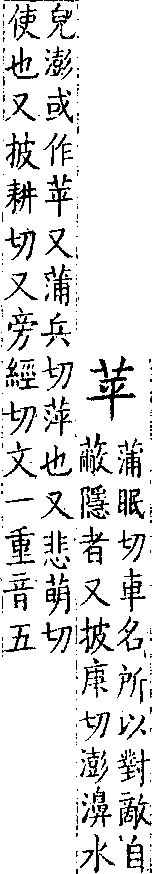 苹
蒲眠切車名所以對敵自
蔽隱者又披庚切澎濞水
皃澎或作苹又蒲兵切萍也又悲萌切
使也又披耕切又旁經切文一重音五